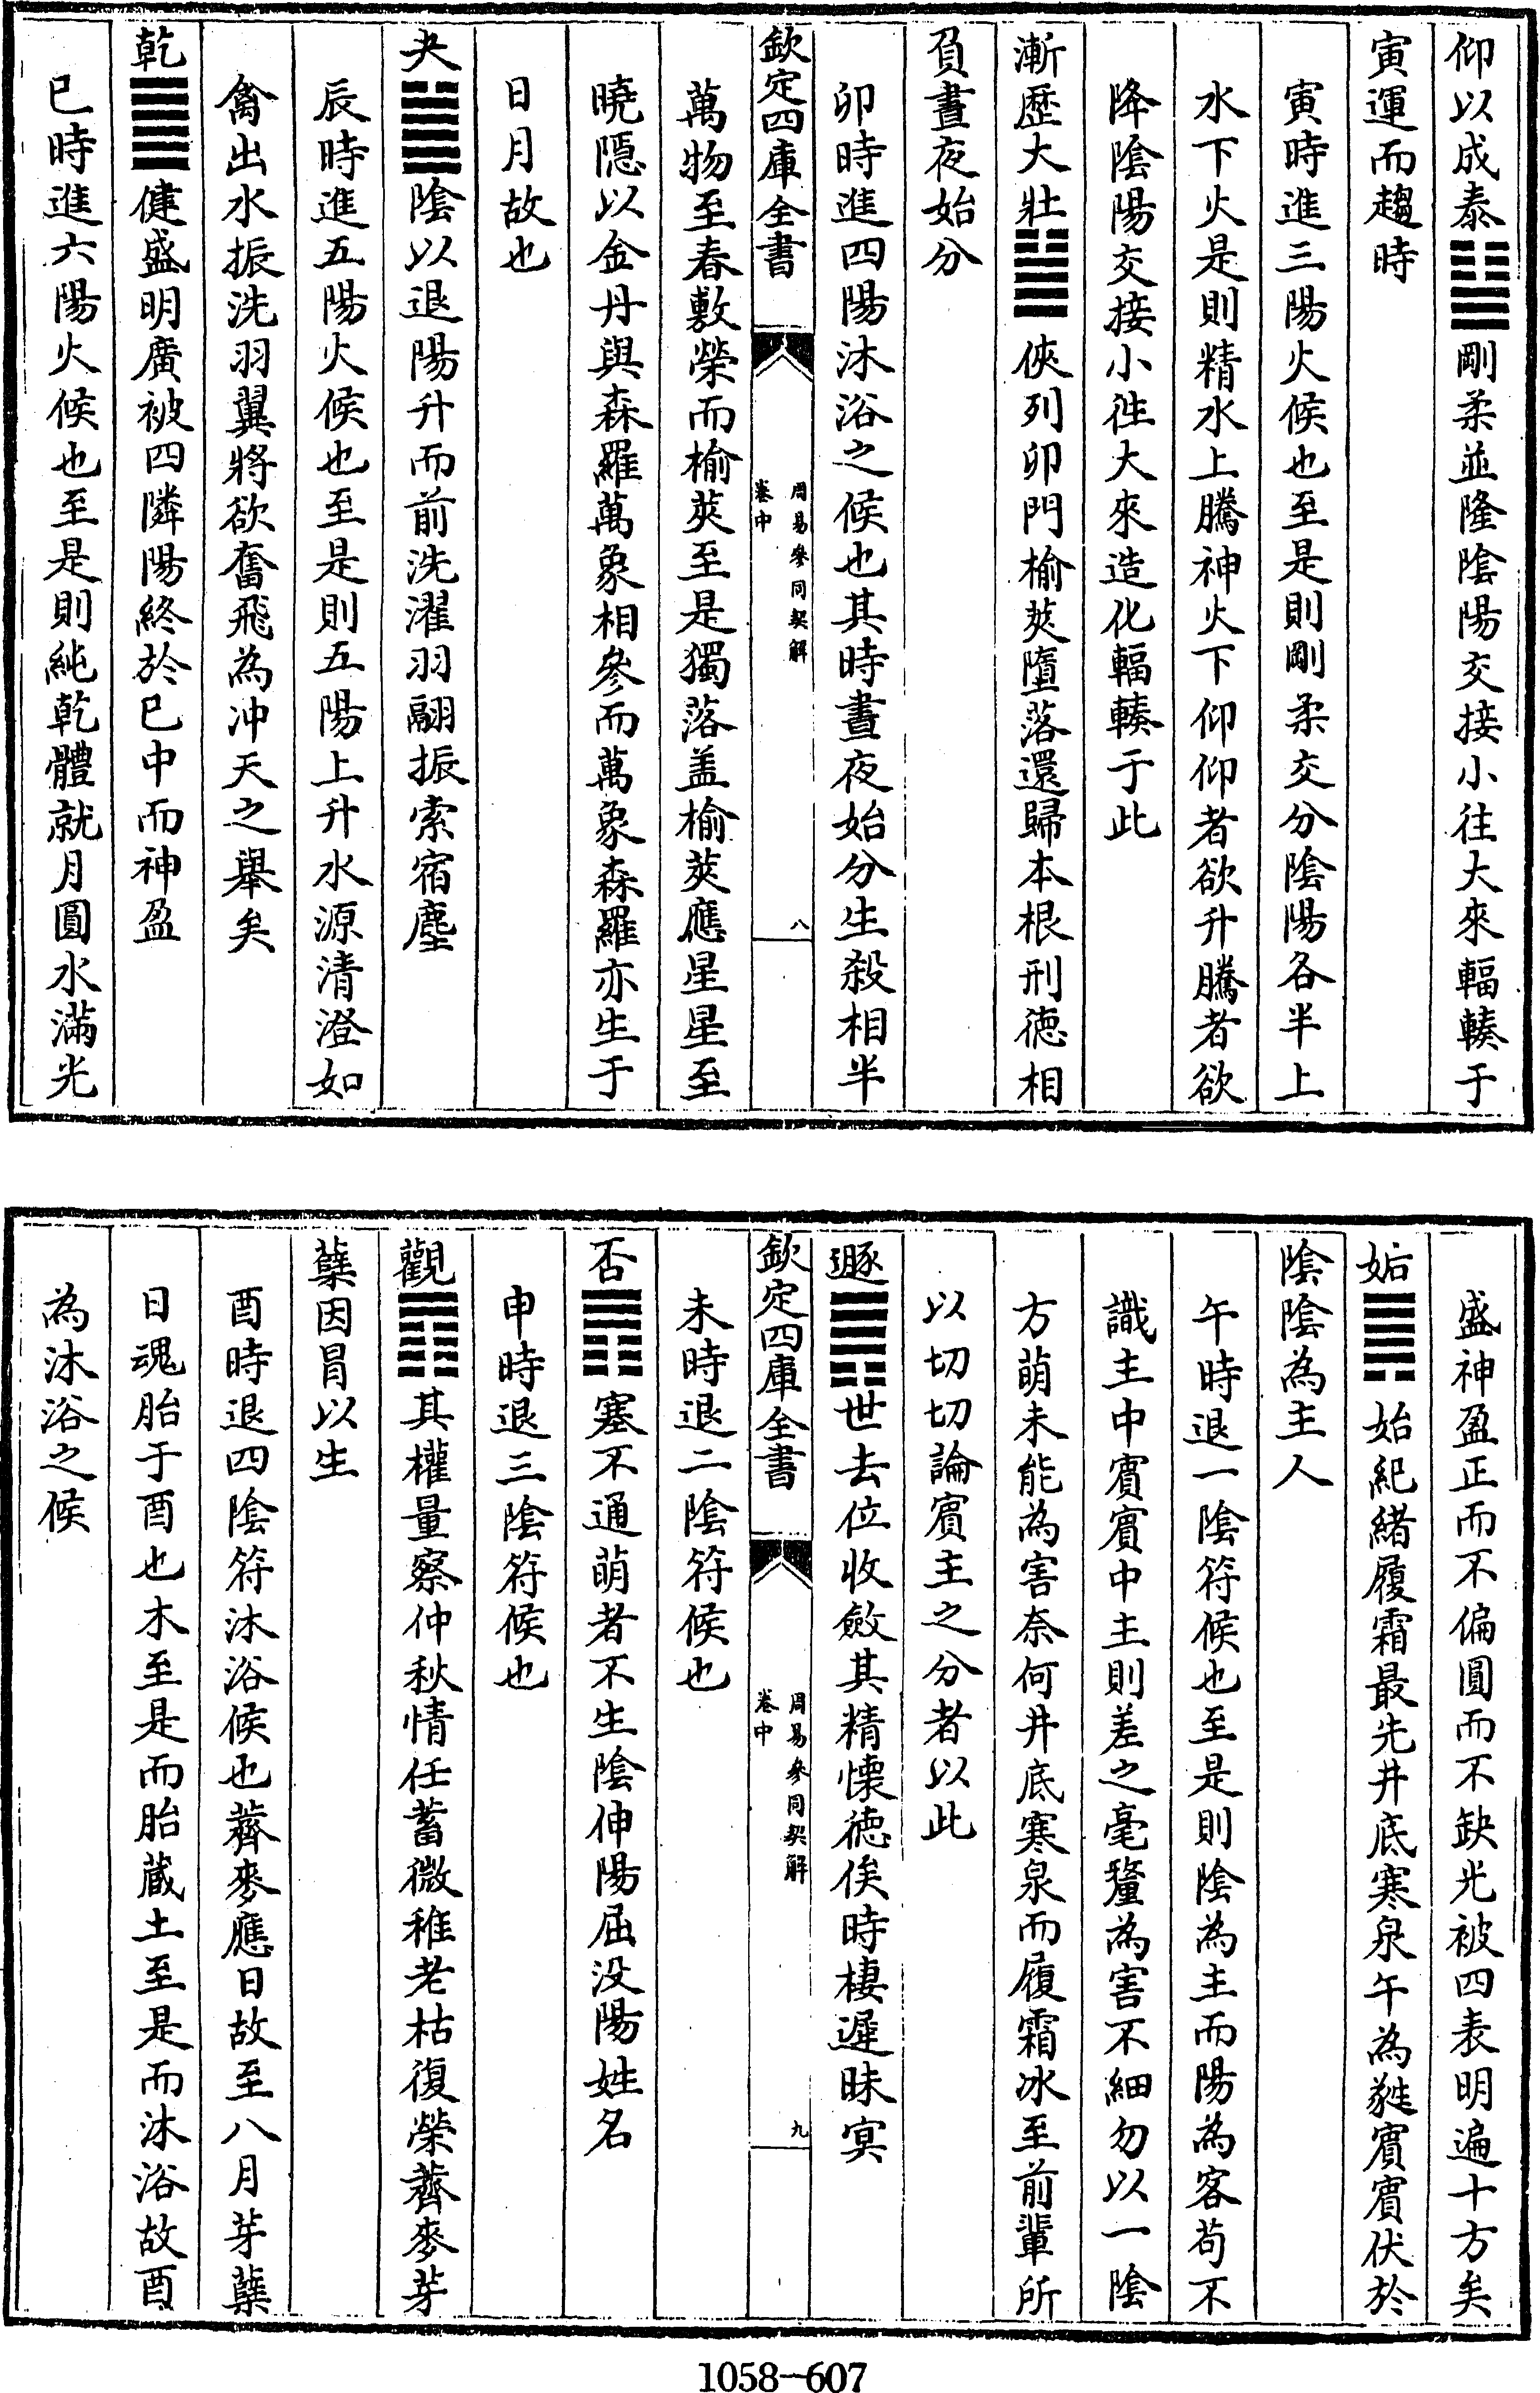 仰以成泰䷊剛柔並隆陰陽交接小往大來輻輳于
寅運而趨時
寅時進三陽火候也至是則剛柔交分陰陽各半上
水下火是則精水上騰神火下仰仰者欲升騰者欲
降陰陽交接小徃大來造化輻輳于此
漸歷大壯䷡俠列卯門榆莢墮落還歸本根刑德相
負晝夜始分
卯時進四陽沐浴之候也其時晝夜始分生殺相半
欽定四庫全書
周易參同契解
卷中
八
萬物至春敷榮而榆莢至是獨落盖榆莢應星星至
曉隱以金丹與森羅萬象相參而萬象森羅亦生于
日月故也
夬䷪陰以退陽升而前洗濯羽翮振索宿塵
辰時進五陽火候也至是則五陽上升水源清澄如
禽出水振洗羽翼將欲奮飛為冲天之舉矣
乾䷀健盛明廣被四隣陽終於巳中而神盈
巳時進六陽火候也至是則純乾體就月圓水滿光
盛神盈正而不偏圓而不缺光被四表明遍十方矣
姤䷫始紀緒履霜最先井底寒泉午為蕤賓賓伏於
陰陰為主人
午時退一陰符候也至是則陰為主而陽為客苟不
識主中賓賓中主則差之毫釐為害不細勿以一陰
方萌未能為害奈何井底寒泉而履霜冰至前軰所
以切切論賓主之分者以此
遯䷠世去位收斂其精懷德俟時棲遲昧冥
欽定四庫全書
周易參同契解
卷中
九
未時退二陰符候也
否䷋塞不通萌者不生陰伸陽屈沒陽姓名
申時退三陰符候也
觀䷓其權量察仲秋情任蓄微稚老枯復榮薺麥芽
蘖因冒以生
酉時退四陰符沐浴候也薺麥應日故至八月芽蘖
日魂胎于酉也木至是而胎藏土至是而沐浴故酉
為沐浴之候
1058-607